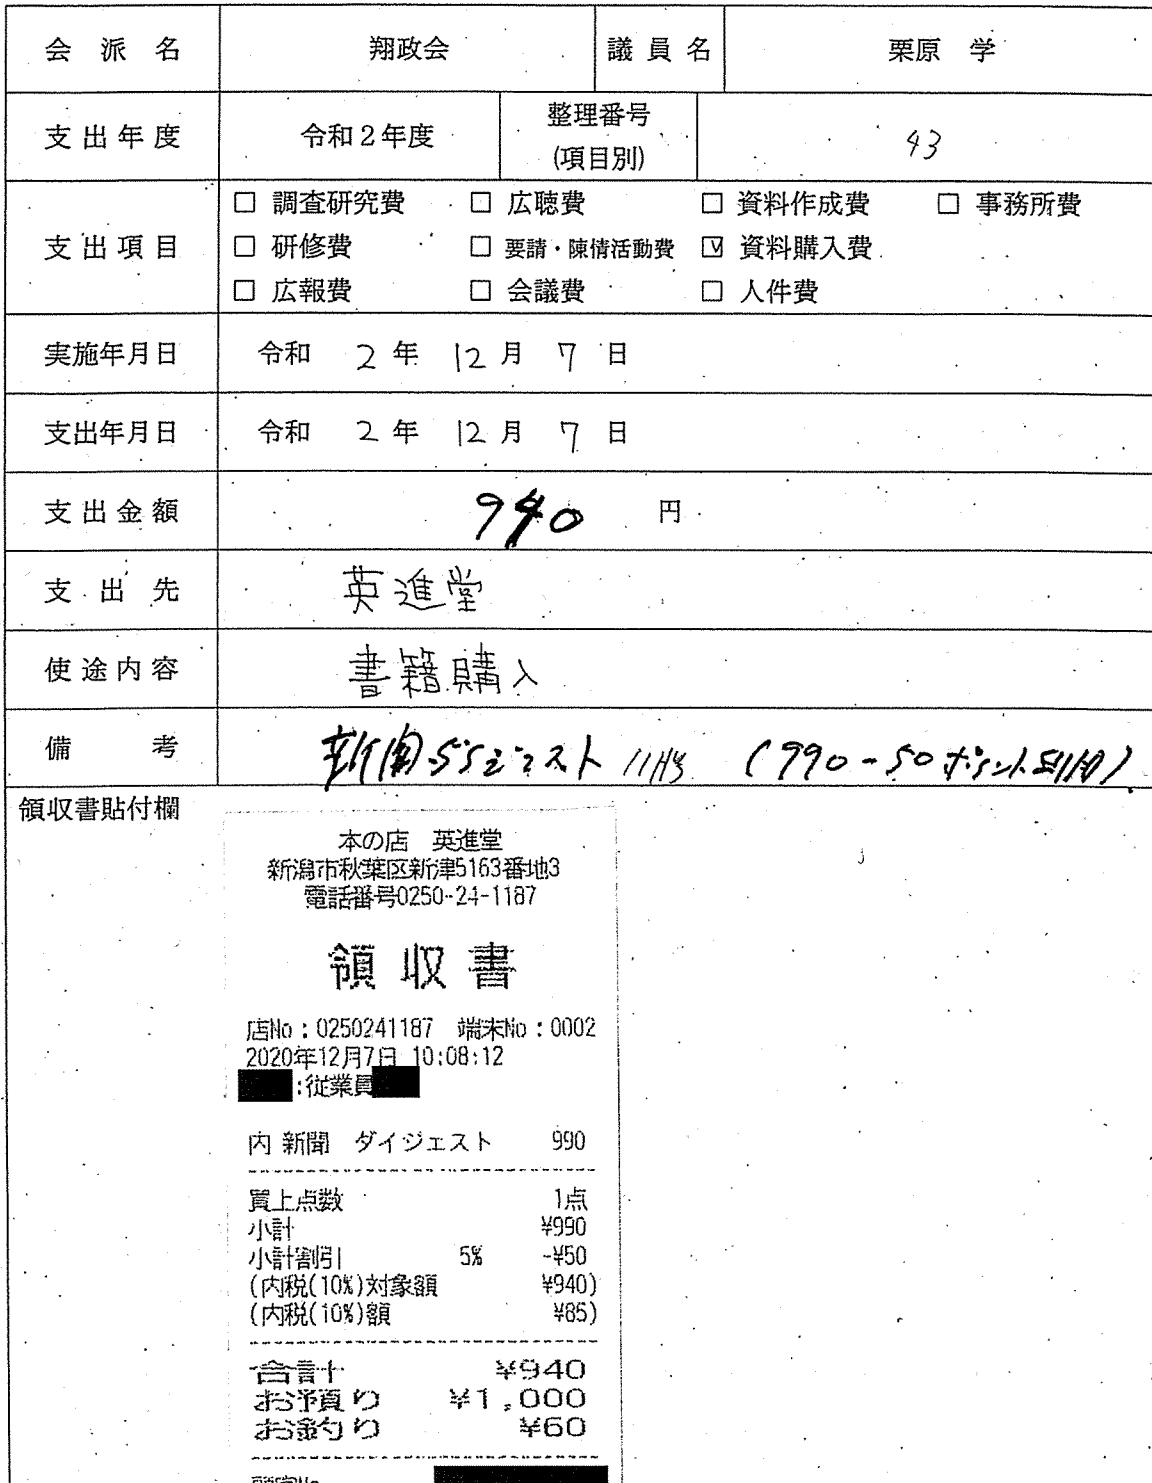 会派名 翔政会 議員名 栗原 学
支出年度 令和2年度 整理番号(項目別) 43
支出項目
□ 調査研究費 □ 広聴費 □ 資料作成費 □ 事務所費
□ 研修費 □ 要請・陳情活動費 ☑ 資料購入費
□ 広報費 □ 会議費 □ 人件費
実施年月日 令和 2年 12月 7日
支出年月日 令和 2年 12月 7日
支出金額 940 円
支出先 英進堂
使途内容 書籍購入
備考 新聞ダイジェスト 11月号 (990-50ポイント
領収書貼付欄
本の店 英進堂
新潟市秋葉区新津5163番地3
電話番号0250-24-1187
領収書
店No:0250241187 端末No:0002
2020年12月7日 10:08:12
:従業員
内 新聞 ダイジェスト 990
買上点数 1点
小計 ¥990
小計割引 5% -¥50
(内税(10%)対象額 ¥940)
(内税(10%)額 ¥85)
合計 ¥940
お預り ¥1,000
お釣り ¥60